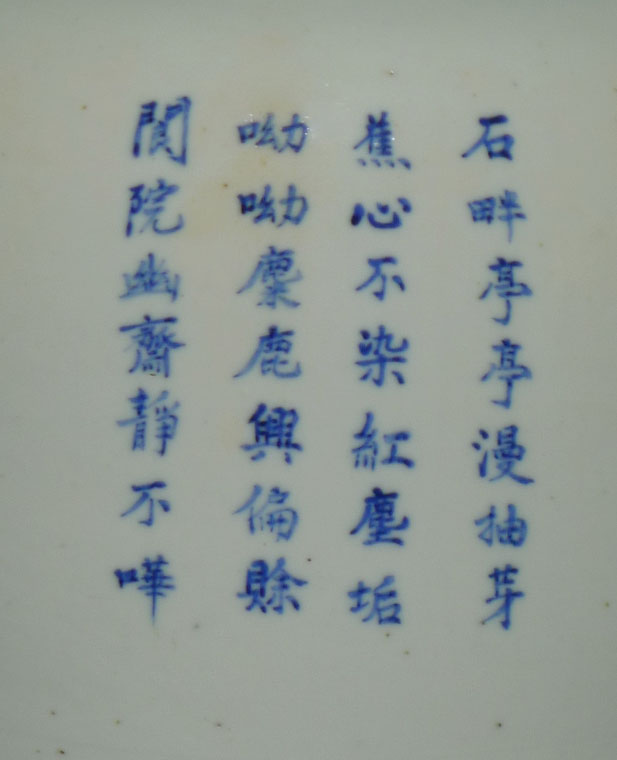 石畔亭亭漫抽芽
蕉心不染紅塵垢
呦呦麋鹿興偏賖
閒院幽齋靜不嘩